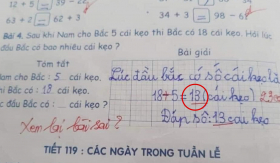 12 + 5 = 39 - 22
63 + 2 = 62 + 3
34 + 3 = 98 - 6
Bài 4. Sau khi Nam cho Bắc 5 cái kẹo thì Bắc có 18 cái kẹo. Hỏi lúc
đầu Bắc có bao nhiêu cái kẹo ?
Tóm tắt
Bài giải
Nam cho Bắc : 5 cái kẹo.
Lúc đầu bắc có số cái kẹo là
Bắc có : 18 cái kẹo.
18 + 5 = 13 (cái kẹo)
đầu Bắc có : ... cái kẹo ?
Đáp số: 13 cái kẹo
Xem lại bài sai ?
TIẾT 119 : CÁC NGÀY TRONG TUẦN LỄ